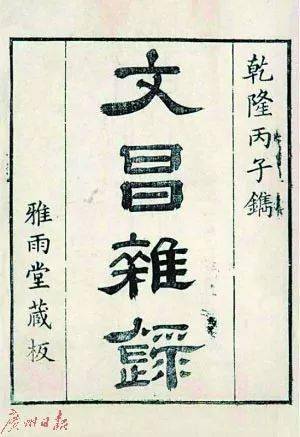 乾隆丙子鐫
文昌雜錄
雅雨堂藏板
廣州日報